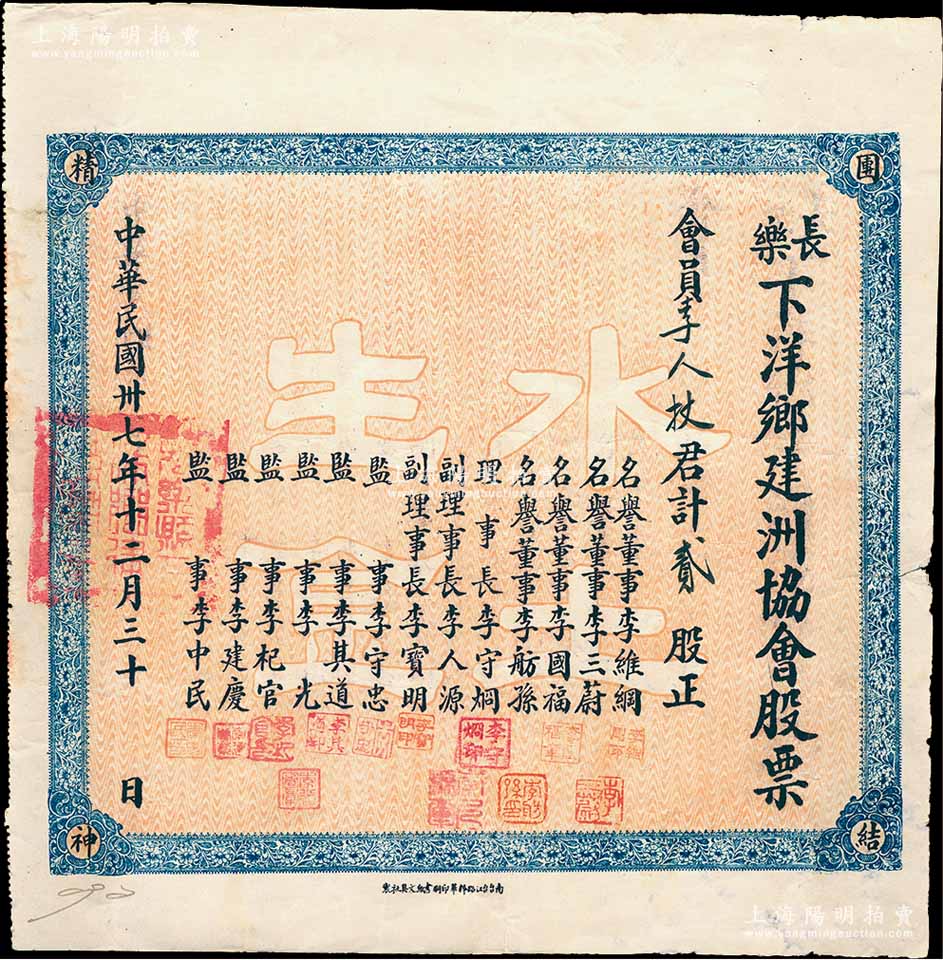 上海陽明拍賣
www.yangmingauction.com
團結
精神
長樂下洋鄉建洲協會股票
會員李人杖君計貳股正
水土生金
名譽董事李維綱
名譽董事李三蔚
名譽董事李國福
名譽董事李舫孫
理事長李守烱
副理事長李人源
副理事長李寶明
監事李守忠
監事李其道
監事李光
監事李杞官
監事李建慶
監事李中民
中華民國卅七年十二月三十日
李守烱印
上海陽明拍賣
www.yangmingauction.com